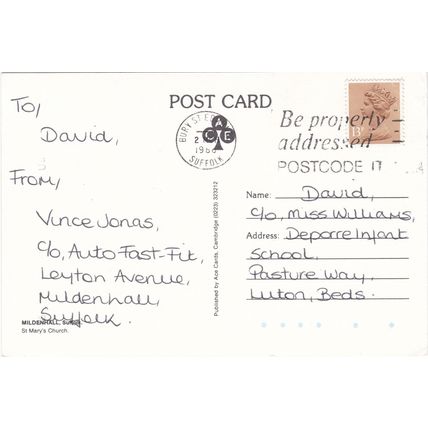 To,
David,
From,
Vince Jonas,
c/o, Auto Fast-Fit,
Leyton Avenue,
Mildenhall,
Suffolk.
MILDENHALL,
St Mary's Church.
Published by Ace Cards, Cambridge (0223) 323212
POST CARD
ACE
BURY ST
2
SUFFOLK
Be properly
addressed
POSTCODE IT
13P
Name: David,
c/o, Miss Williams,
Address: Deporre Infant
School,
Pasture Way,
Luton, Beds.